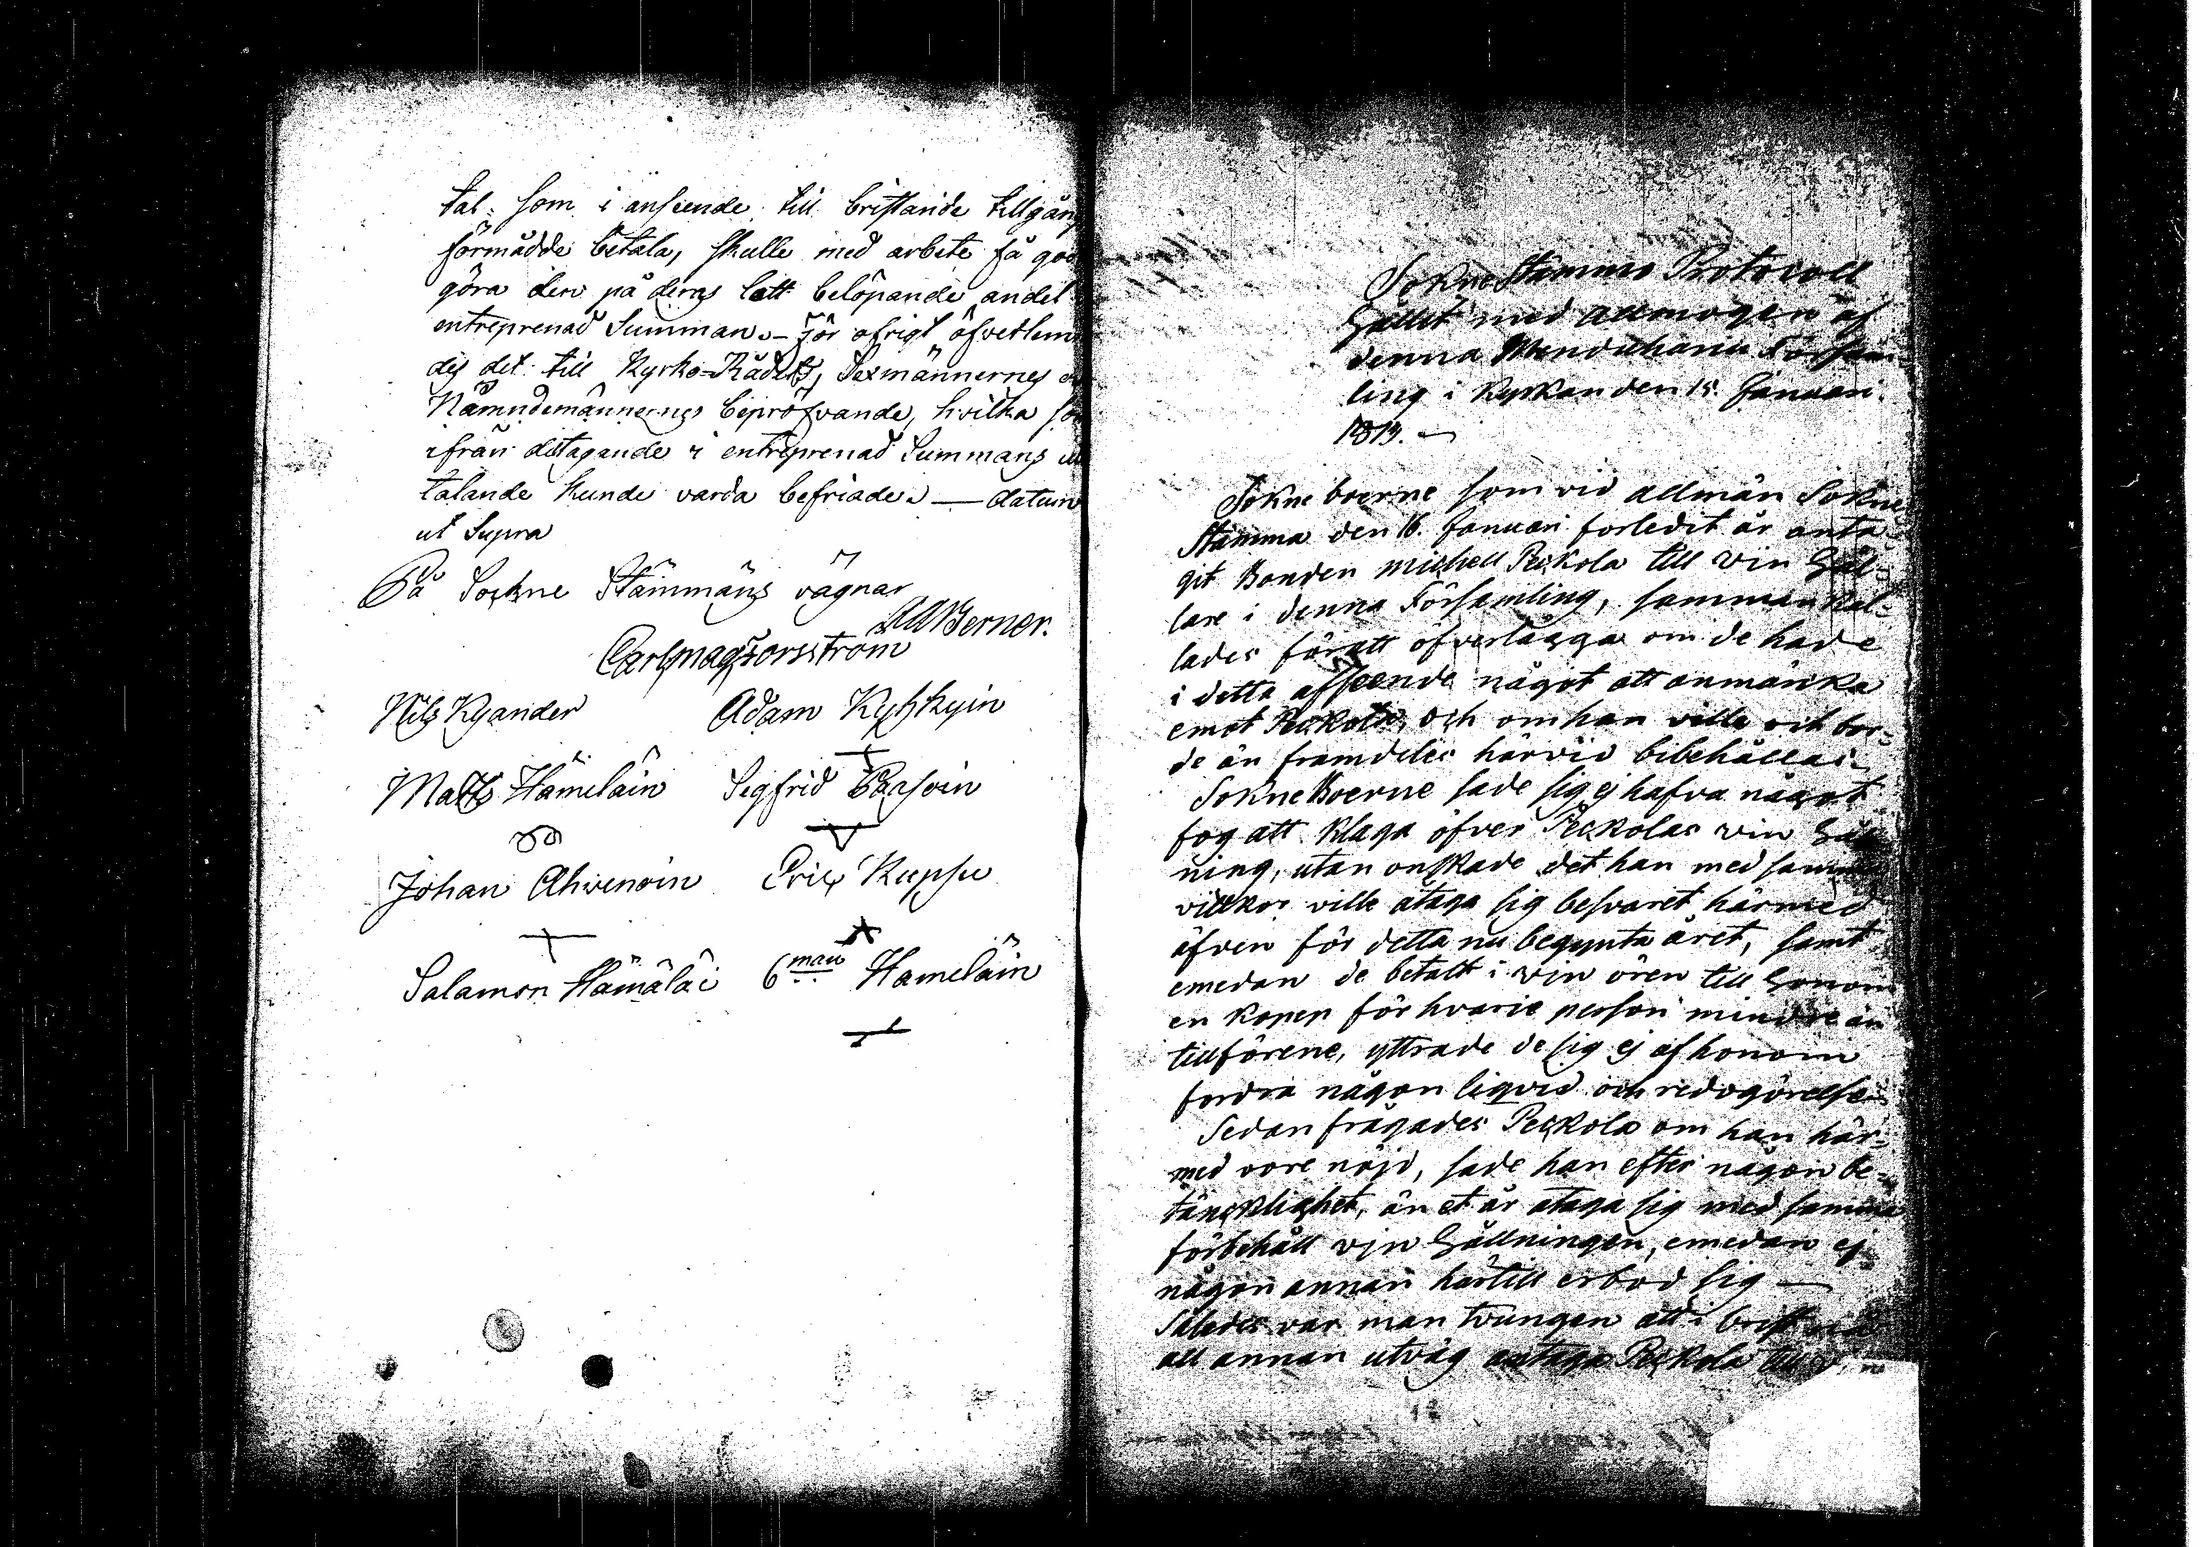 tal som i anseende till bristande tillgång
förmådde betala, skulle med arbete få god
göra den på deras lott belöpande andel
entreprenad Summan. – För öfrigt öfverlem
des det till Kyrko-Rådets, Sexmännernes
Nämndemännernes bepröfvande, hvilka
ifrån deltagande i entreprenad Summans
talande kunde varda befriade. — datum
ut Supra
På Sockne Stämmans vägnar
Werner.
Carl Mag Forsström
Nils Kyander Adam Kyhkyin
Matts Hämeläin Sigfrid
Johan Ahvenoin Eric Kupsu
Salamon Hämäläi 6man Hameläin
Sokne Stämmo Protocoll
hållit med allmogen af
denna Församling
ling i Kyrkan den 15 Januari
1819. —
Sokne boerne som vid allmän Sokne
Stämma den 16. Januari forledit år anta-
git Bonden michell Peckola till vin hål-
lare i denna Församling, samman kal-
lades för att öfverlägga om de hade
i detta afseende något att anmärka
emot Peckola, och om han ville och bor-
de än framdeles härvid bibehållas.
Sokne Boerne sade sig ej hafva något
fog att klaga öfver Peckolas vin håll
ning, utan onskade det han med samma
villkor ville åtaga sig besvaret härmed
äfven för detta nu begynta året, samt
emedan de betalt i vin ören till honom
en kopen för hvarie person mindre än
tillförene, yttrade de sig ej af honom
fordra någon liqvid och redogörelse.
Sedan frågades Peckola om han här-
med vore nöjd, sade han efter någon be-
täncklighet, än et år åtaga sig med samma
förbehåll vin hållningen, emedan ej
någon annan härtill erbod sig —
Således var man tvungen att i brist
all annan utväg antaga Peckola till